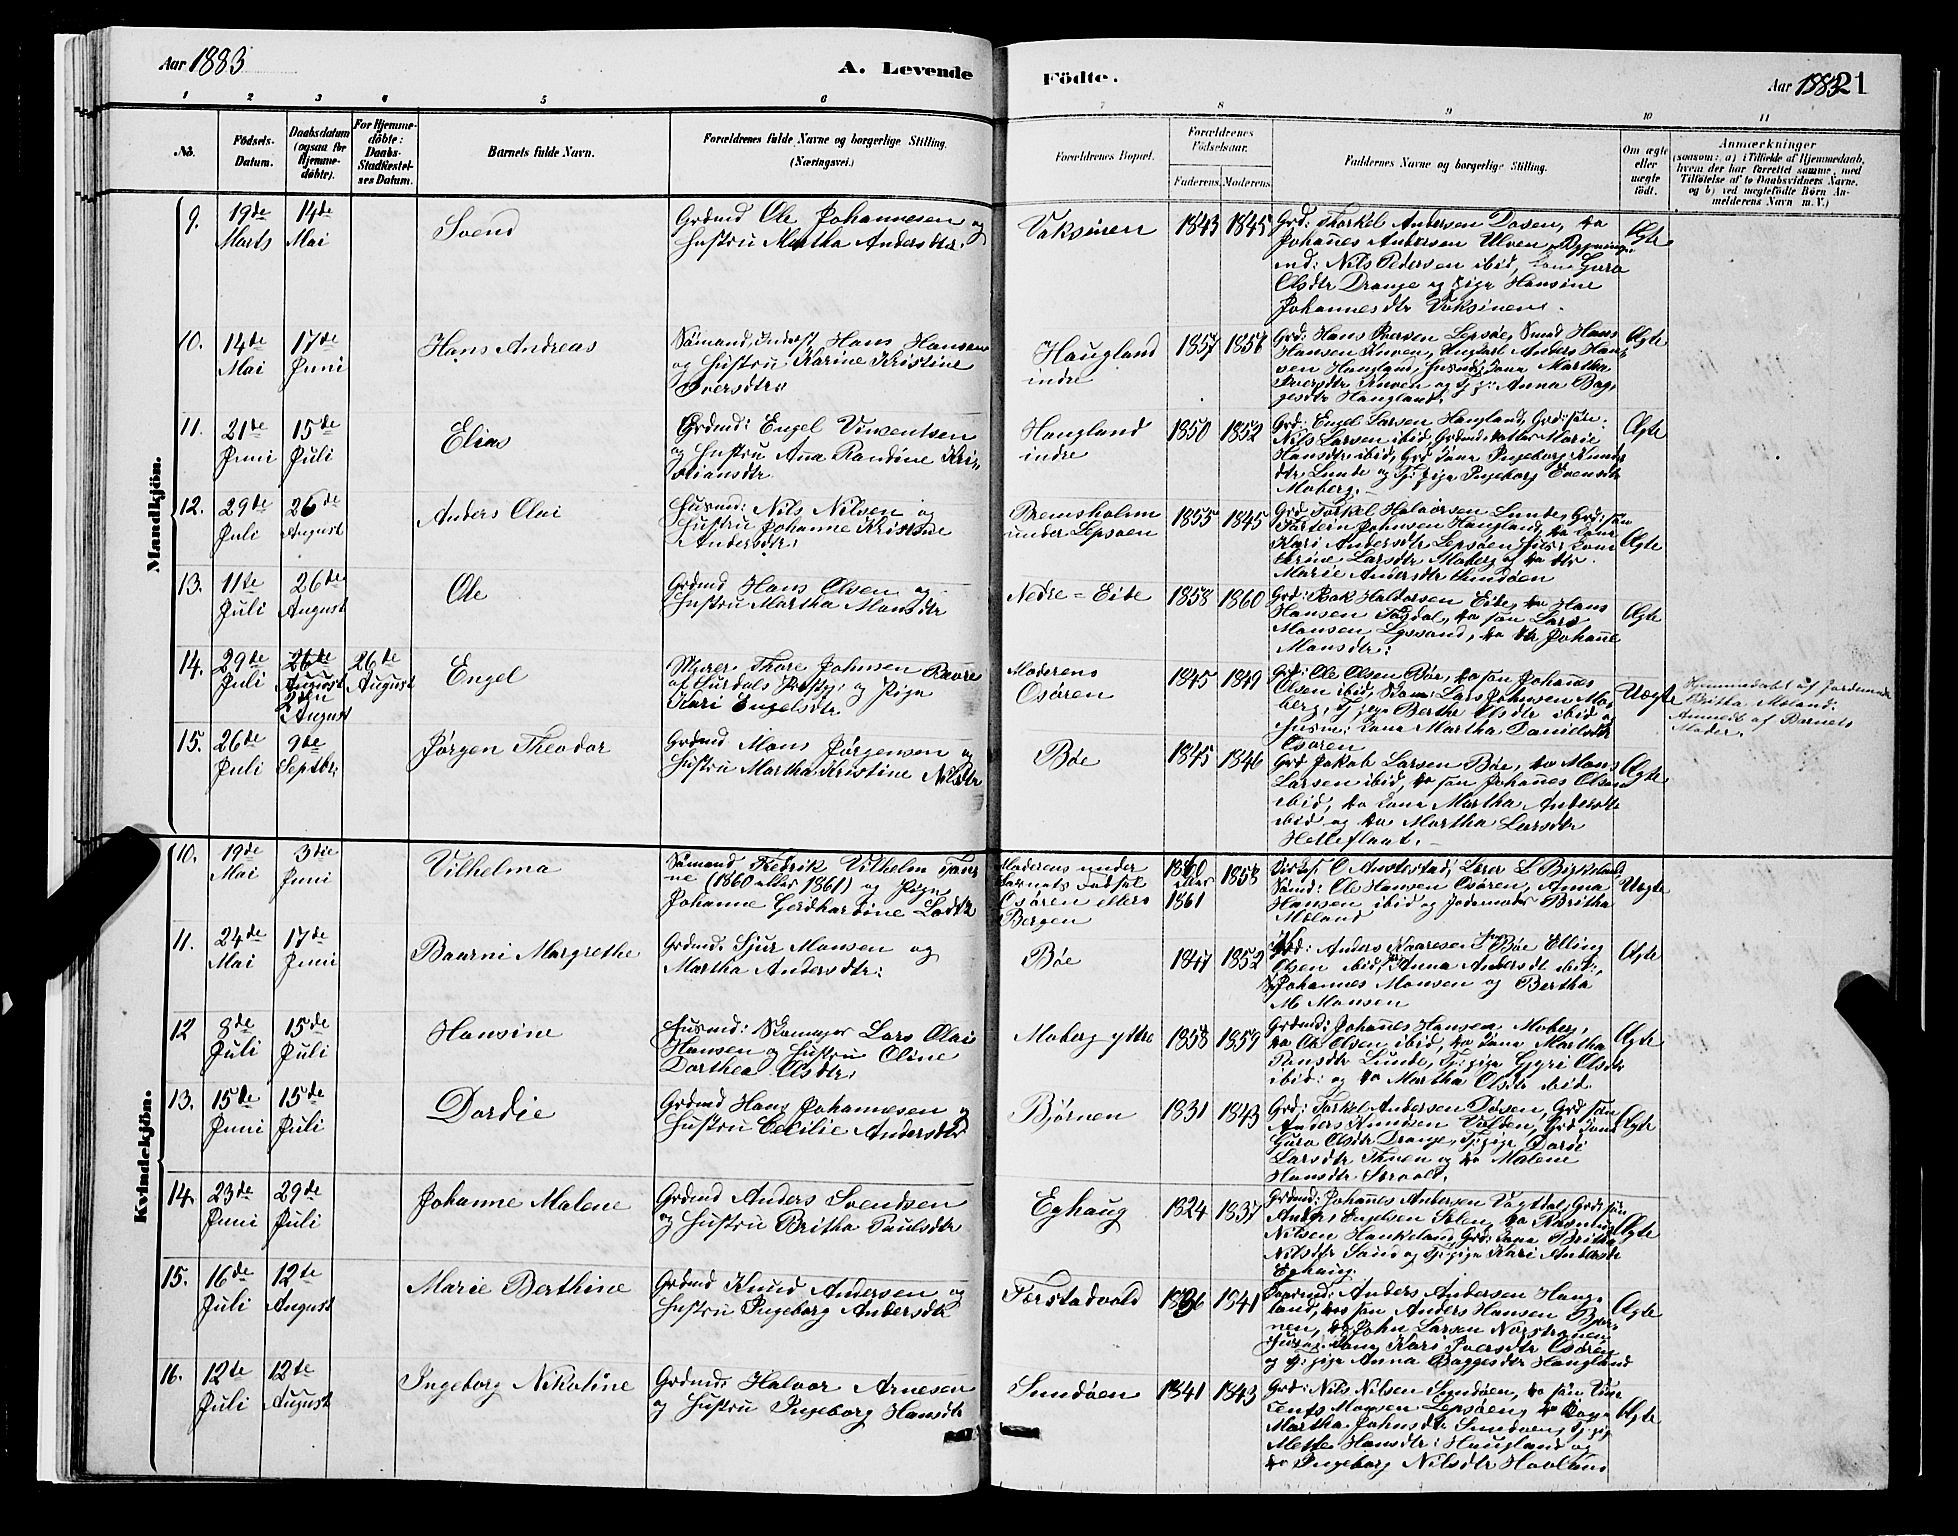 Aar 1883
A. Levende
Födte.
Aar 1883
21
1 2 3 4 5 6 7 8 9 10 11
No. Födsels-Datum. Daabsdatum (ogsaa for Hjemmedöbte). For Hjemmedöbte: Daabs-Stadfæstelses Datum. Barnets fulde Navn. Forældrenes fulde Navne og borgerlige Stilling. (Næringsvei.) Forældrenes Bopæl. Forældrenes Födselsaar. Faderens. Moderens. Faddernes Navne og borgerlige Stilling. Om ægte eller uægte födt. Anmærkninger (saasom: a) i Tilfælde af Hjemmedaab, hvem der har forrettet samme, med Tilföielse af to Daabsvidners Navne, og b) ved uægtefödte Börn Anmelderens Navn m. V.)
Mandkjön.
9. 19de Marts 14de Mai Svend
Grdmd Ole Johannesen og
Hustru Martha Andersdtr.
Vaksinen 1843 1845
Grd: Thorkel Andersen Dosen, do
Johanes Andersen Ulven,
md: Nils Pedersen ibid, Kone Guro
Olsdtr Drange og Pige Hansine
Johannesdtr Vaksinen.
Ægte
10. 14de Mai 17de Juni Hans Andreas
Sömand, Inderst Hans Hansen
og Hustru Karine Kristine
Iversdtr
Haugland indre 1857 1857
Grd: Hans Iversen Lepsöe, Smd Hans
Hansen Tuven, Ungkarl Anders Han
sen Haugland, Kone Martha
Iversdtr Tuven og Pige Anna Bag
gesdtr Haugland.
Ægte
11. 21de Juni 15de Juli Elias
Grdmd: Engel Vinsentsen
og Hustru Ana Randine Kri
stiansdtr.
Haugland indre 1850 1852
Grd: Engel Larsen Haugland, Grd: sön
Nils Larsen ibid, Grdmds datter Marie
Hansdtr ibid, Grd Kone Ingeborg Knuds
dtr Lunde og Pige Ingeborg Evensdtr
Moberg.
Ægte
12. 29de Juli 26de August Anders Olai
Husmd: Nils Nilsen og
Hustru Johanne Kristine
Andersdtr.
Bremsholm under Lepsöen 1855 1845
Grd Torkel Halvorsen Lunde, Grd: sön
Torstein Johnsen Haugland, do Kone
Kari Andersdtr Lepsöen, Kone
Larsdtr Moberg og do dtr.
Marie Andersdtr Sundöen
Ægte
13. 11te Juli 26de August Ole
Grdmd Hans Olsen og
Hustru Martha Monsdtr
Nedre = Eide 1858 1860
Grd: Bak Haldorsen Eide, do Hans
Hansen Tögdal, do sön Lars
Monsen Lyssand, do dtr Johane
Monsdtr.
Ægte
14. 29de Juli 26de August 2den August 26de August Engel
Murer Thore Johnsen
af Surdals Prestgj. og Pige
Kari Engelsdtr
Moderens Osören 1845 1849
Grd: Ole Olsen Böe, do sön Johanes
Olsen ibid, Lars Johnsen Mo
berg, Pige Berthe Olsdtr ibid og
Husm: Kone Martha Danielsdtr
Osören
Uægte
Hjemmedöbt af Jordemoder
Britha Moland.
Anmeldt af Barnets
Moder.
15. 26de Juli 9de Septbr. Jörgen Theodor
Grdmd Mons Jörgensen og
Hustru Martha Kristine Nilsdtr
Böe 1845 1846
Grd Jakob Larsen Böe, do Mons
Larsen ibid, do sön Johanes Olsen
ibid, do Kone Martha Andersdtr
ibid og do Martha Larsdtr
Helleflaat.
Ægte
Kvindekjön.
10. 19de Mai 3die Juni Vilhelma
Sömand Fredrik Vilhelm
(1860 eller 1861) og Pige
Johanne Gerdhardine
Moderens under Barnets Födsel Osören ellers Bergen 1860 eller 1861 1858
O Austestad, Lærer L Birkeland,
Sömd: Ole Hansen Osören, Anna
Hansen ibid og Jordemoder Britha
Moland
Uægte
11. 24de Mai 17de Juni Baarni Margrethe
Grdmd. Sjur Monsen og
Martha Andersdtr.
Böe 1847 1852
Grd: Anders Kaaresen Böe Elling
Olsen ibid, Anna Andersdtr ibid,
Johannes Monsen og Bertha
M. Monsen
Ægte
12 8de Juli 15de Juli Hansine
Husmd: Skomager Lars Olai
Hansen og Hustru Oline
Dorthea Olsdtr.
Moberg ytre 1858 1859
Grdmd: Johanes Hansen Moberg,
do Ole Olsen ibid, do Kone Martha
Lunde, Pige Gyri Olsdtr
ibid: og do Martha Olsdtr ibid.
Ægte
13. 15de Juni 15de Juli Dordie
Grdmd Hans Johannesen og
Hustru Cecilie Andersdtr
Björnen 1831 1843
Grd: Torkel Andersen Dösen, Grd sön
Anders Knudsen Valden, Grd Kone
Guro Olsdtr Drange, Pige Dordi
Larsdtr Thuen og do Malene
Hansdtr
Ægte
14. 23de Juni 29de Juli Johanne Malene
Grdmd Anders Svendsen
og Hustru Britha Paulsdtr
Eghaug 1824 1837
Grdmd: Johanes Andersen Vogtdal, Grd: sön
Anders Engelsen Solen, do Rasmus
Nilsen Haukeland Grd: Kone Britha
Nilsdtr Sand og Pige Kari Andersdtr
Eghaug.
Ægte
15. 16de Juli 12te August Marie Berthine
Grdmd Knud Andersen og
Hustru Ingeborg Andersdtr
Forstadvold 1836 1841
Anders Andersen Haug
land, do sön Anders Hansen Björ
nen, do John Larsen Norstranen,
Kone Kari Iversdtr Osören
og Pige Anna Baggesdtr Haugland
Ægte
16. 12te Juli 12te August Ingeborg Nikoline
Grdmd. Halvor Arnesen
og Hustru Ingeborg Hansdtr
Sundöen 1841 1843
Grd: Nils Nilsen Sundöen, do sön Vin
sents Monsen Lepsöen, do Kone
Martha Johnsdtr Sundöen, Pige
Mette Hansdtr Haugland og
do Ingeborg Nilsdtr Hovland
Ægte